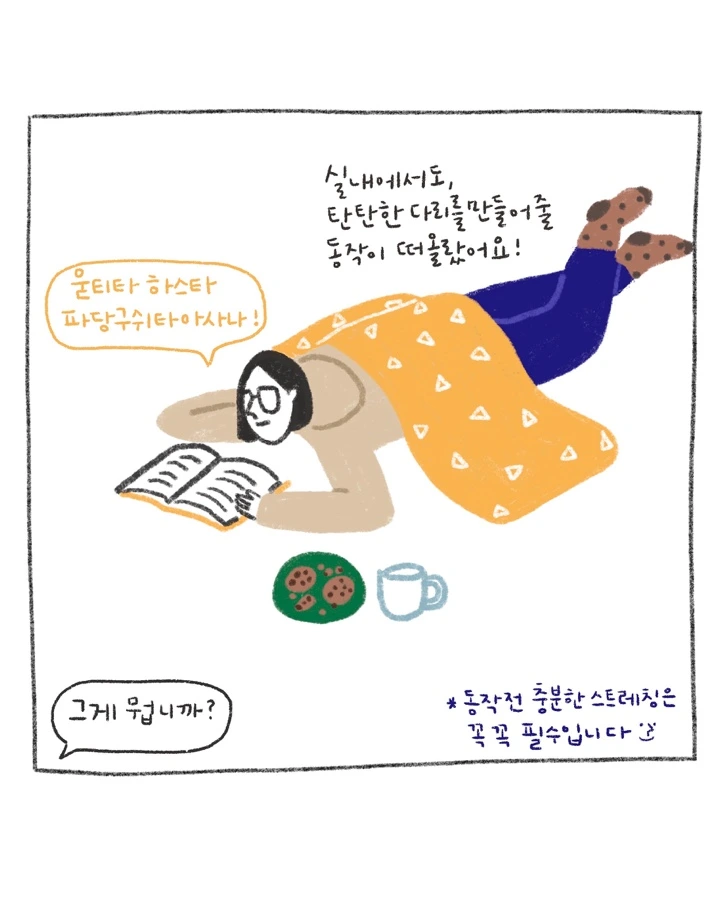 실내에서도,
탄탄한 다리를 만들어 줄
동작이 떠올랐어요!
욷티타 하스타
파당구쉬타아사나!
그게 뭡니까?
* 동작전 충분한 스트레칭은
꼭꼭 필수입니다